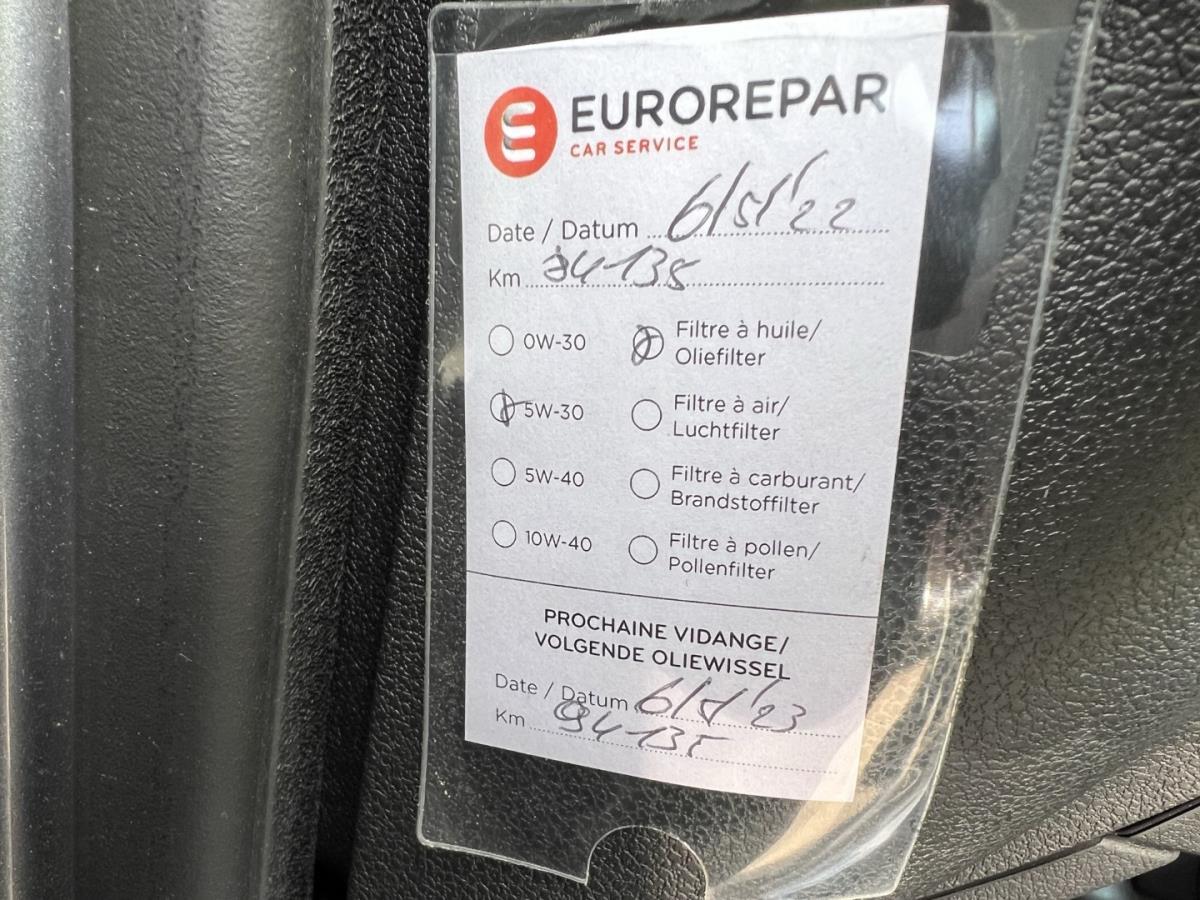 EUROREPAR
CAR SERVICE
Date / Datum 6/5/'22
Km
0W-30 Filtre à huile/
Oliefilter
5W-30 Filtre à air/
Luchtfilter
5W-40 Filtre à carburant/
Brandstoffilter
10W-40 Filtre à pollen/
Pollenfilter
PROCHAINE VIDANGE/
VOLGENDE OLIEWISSEL
Date / Datum 6/5/'23
Km 94-135